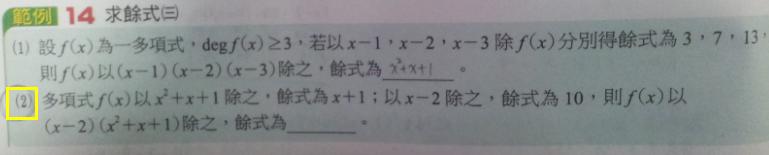 範例 14 求餘式㈢
(1) 設f(x)為一多項式，deg f(x)≥3，若以x−1，x−2，x−3除f(x)分別得餘式為3，7，13，
則f(x)以(x−1)(x−2)(x−3)除之，餘式為 x²+x+1 。
(2) 多項式f(x)以x²+x+1除之，餘式為x+1；以x−2除之，餘式為10，則f(x)以
(x−2)(x²+x+1)除之，餘式為______。